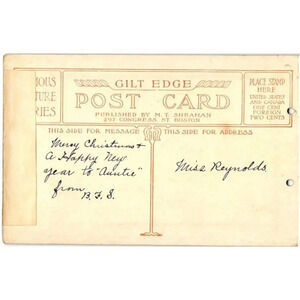 GILT EDGE
POST CARD
PUBLISHED BY M. T. SHEAHAN
CONGRESS ST BOSTON
RIES
PLACE STAMP
HERE
UNITED STATES
AND CANADA
ONE CENT
FOREIGN
TWO CENTS
THIS SIDE FOR MESSAGE
THIS SIDE FOR ADDRESS
Merry Christmas &
A Happy New
year to "Auntie"
from
B. F. S.
Miss Reynolds.